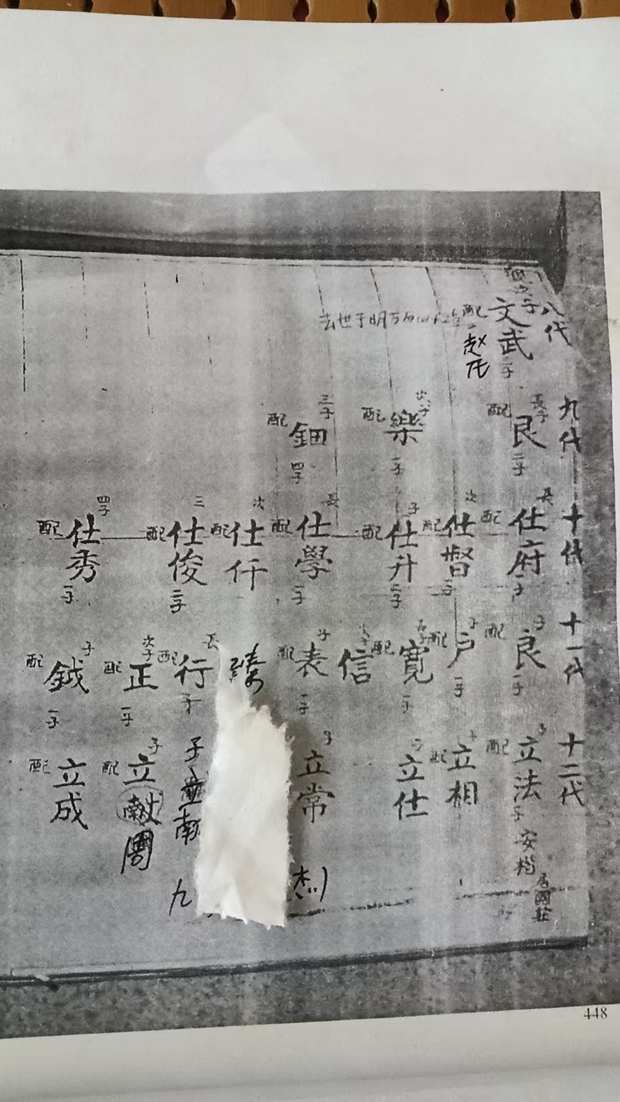 八代
次子 文武 二子 配 赵氏
去世于明万
九代
長子 艮 二子 配
次子 樂 一子 配
三子 鈿 四子 配
十代
長 仕府 一子 配
次 仕督 一子 配
子 仕升 二子 配
長 仕學 一子 配
次 仕仟 配
三 仕俊 二子 配
四子 仕秀 一子 配
十一代
子 良 子 配
子 户 一子 配
長子 寬 一子 配
次子 信
子 表 一子 配
長 行 子 配
次子 正 一子 配
子 鉞 一子 配
十二代
子 立法 子 安楷 配
子 立相 配
子 立仕
子 立常
子
子 立獻 周 配
立成 配
九
杰
448